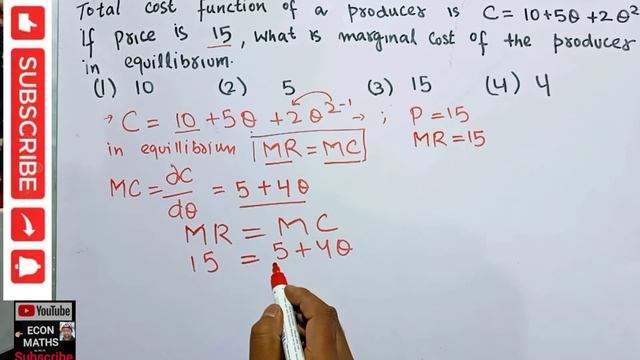 Total cost function of a producer is C = 10+5θ+2θ²
If price is 15, what is marginal cost of the producer
in equillibrium.
(1) 10 (2) 5 (3) 15 (4) 4
C = 10 + 5θ + 2θ²⁻¹ ; P = 15
in equillibrium MR = MC MR = 15
MC = ∂C/dθ = 5 + 4θ
MR = MC
15 = 5 + 4θ
SUBSCRIBE
YouTube
ECON
MATHS
Subscribe